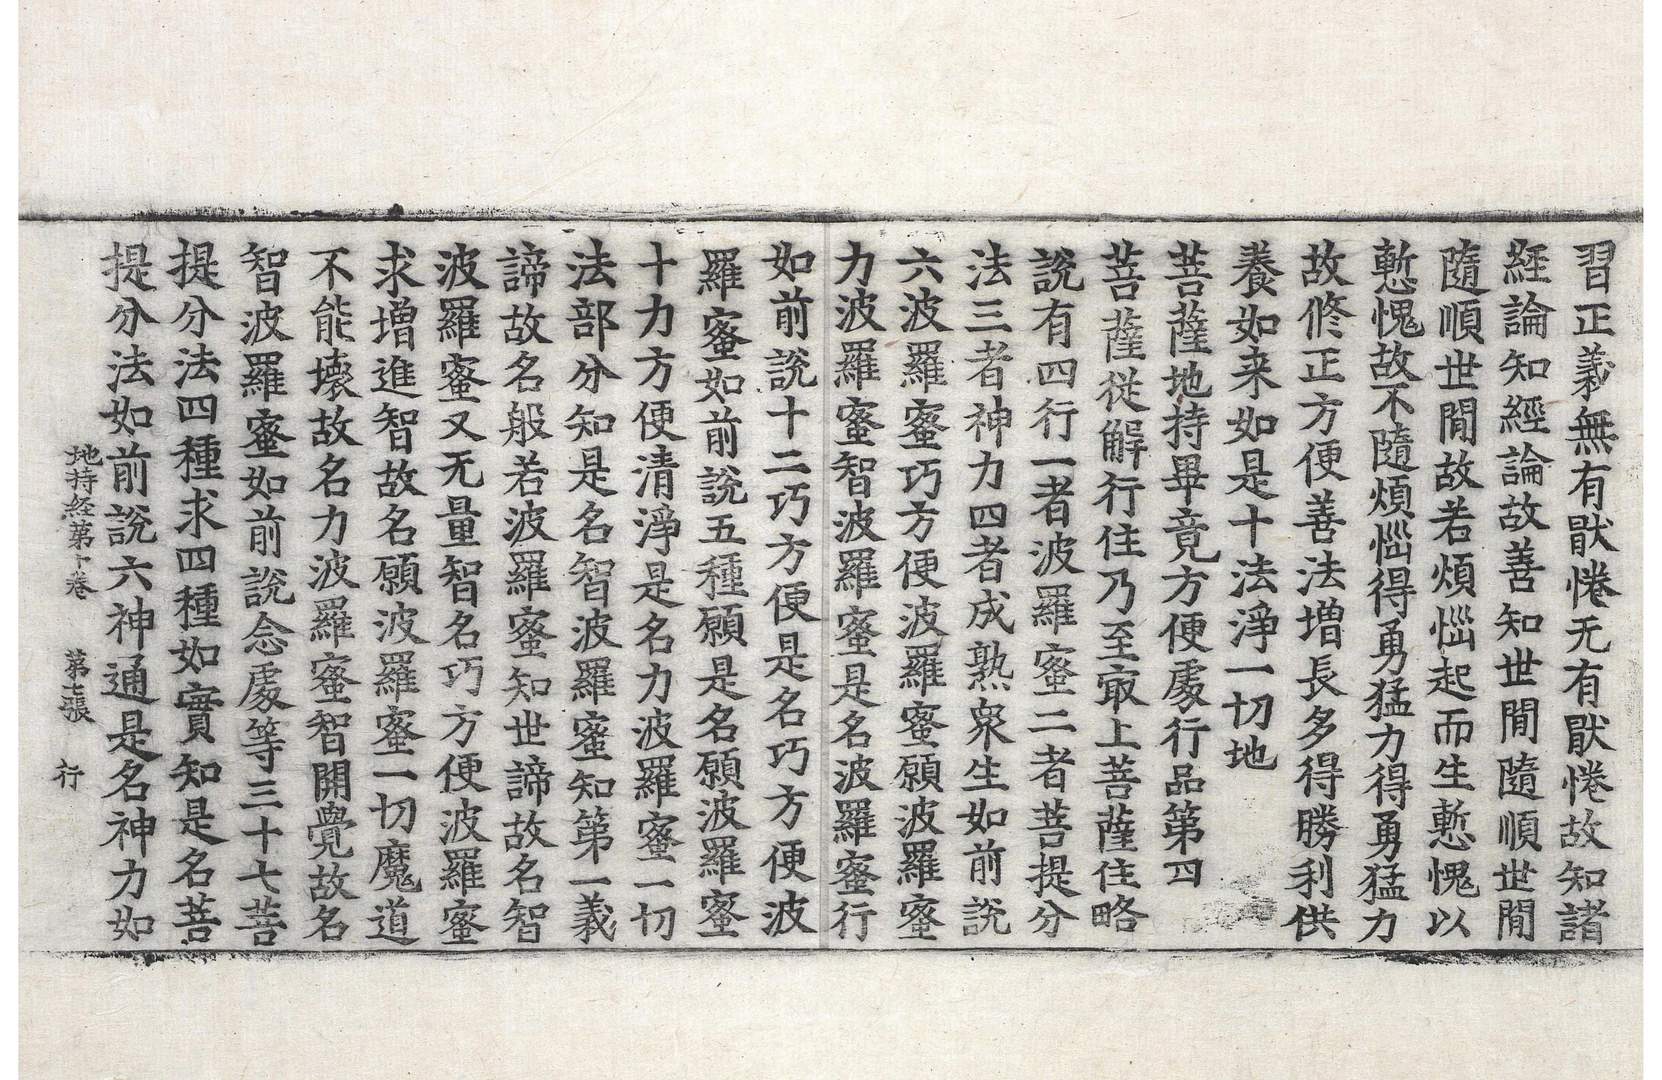 習正義無有猒惓无有猒惓故知諸
經論知經論故善知世間隨順世間
隨順世間故若煩惱起而生慙愧以
慙愧故不隨煩惱得勇猛力得勇猛力
故脩正方便善法增長多得勝利供
養如来如是十法淨一切地
菩薩地持畢竟方便處行品第四
菩薩從解行住乃至㝡上菩薩住略
說有四行一者波羅蜜二者菩提分
法三者神力四者成熟衆生如前說
六波羅蜜巧方便波羅蜜願波羅蜜
力波羅蜜智波羅蜜是名波羅蜜行
如前說十二巧方便是名巧方便波
羅蜜如前說五種願是名願波羅蜜
十力方便清淨是名力波羅蜜一切
法部分知是名智波羅蜜知第一義
諦故名般若波羅蜜知世諦故名智
波羅蜜又无量智名巧方便波羅蜜
求增進智故名願波羅蜜一切魔道
不能壞故名力波羅蜜智開覺故名
智波羅蜜如前說念處等三十七菩
提分法四種求四種如實知是名菩
提分法如前說六神通是名神力如
地持経第十卷 第七張 行